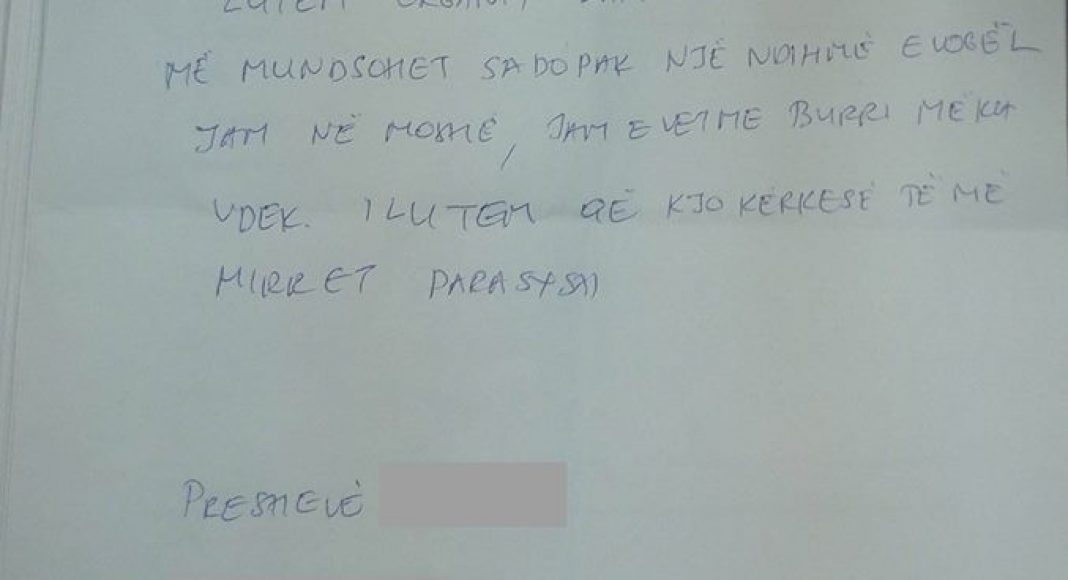 LUTEM
MË MUNDSOHET SADOPAK NJË NDIHMË E VOGËL
JAM NË MOSHË, JAM E VETME BURRI MË KA
VDEK. I LUTEM QË KJO KËRKESË TË MË
MIRRET PARASYSH
PRESHEVË